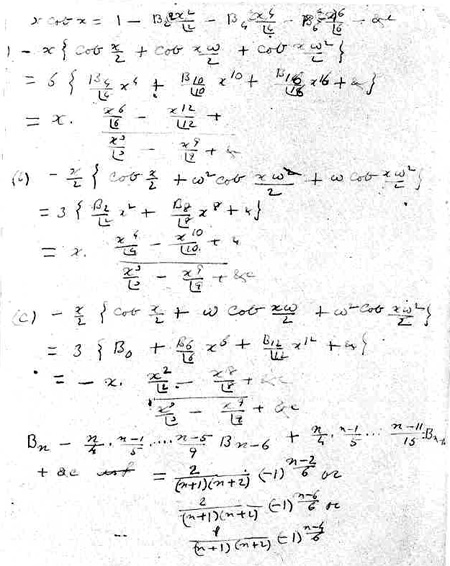 x cot x = 1 - B₂ 2x²/⌊2 - B₄ x⁴/⌊4 - B₆ x⁶/⌊6 - &c
) - x { cot x/2 + cot xω/2 + cot xω²/2 }
= 6 { B₄/⌊4 x⁴ + B₁₀/⌊10 x¹⁰ + B₁₆/⌊16 x¹⁶ + &c }
= x. (x⁶/⌊6 - x¹²/⌊12 +) / (x³/⌊3 - x⁹/⌊9 + &c)
(b) - x/2 { cot x/2 + ω² cot xω/2 + ω cot xω²/2 }
= 3 { B₂/⌊2 x² + B₈/⌊8 x⁸ + & }
= x. (x⁴/⌊4 - x¹⁰/⌊10 + &) / (x³/⌊3 - x⁹/⌊9 + &c)
(c) - x/2 { cot x/2 + ω cot xω/2 + ω² cot xω²/2 }
= 3 { B₀ + B₆/⌊6 x⁶ + B₁₂/⌊12 x¹² + & }
= - x. (x²/⌊2 - x⁸/⌊8 + &c) / (x³/⌊3 - x⁹/⌊9 + &c)
Bₙ - n/4 . n-1/5 ..... n-5/9 Bₙ₋₆ + n/4 . n-1/5 ... n-11/15 : Bₙ₋₁₂
+ &c = 2/(n+1)(n+2) (-1)^(n-2)/6 or
2/(n+1)(n+2) (-1)^(n-6)/6 or
1/(n+1)(n+2) (-1)^(n-4)/6